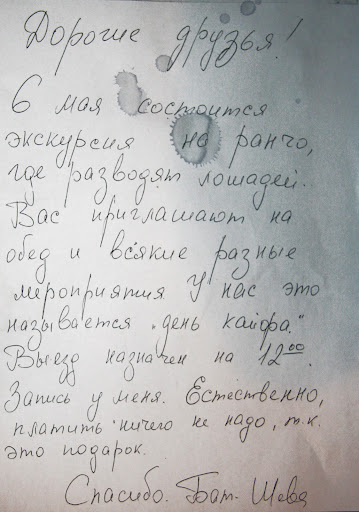 Дорогие друзья!
6 мая состоится
экскурсия на ранчо,
где разводят лошадей.
Вас приглашают на
обед и всякие разные
мероприятия у нас это
называется „день кайфа."
Выезд назначен на 12⁰⁰.
Запись у меня. Естественно,
платить ничего не надо, т.к.
это подарок.
Спасибо. Бат-Шева